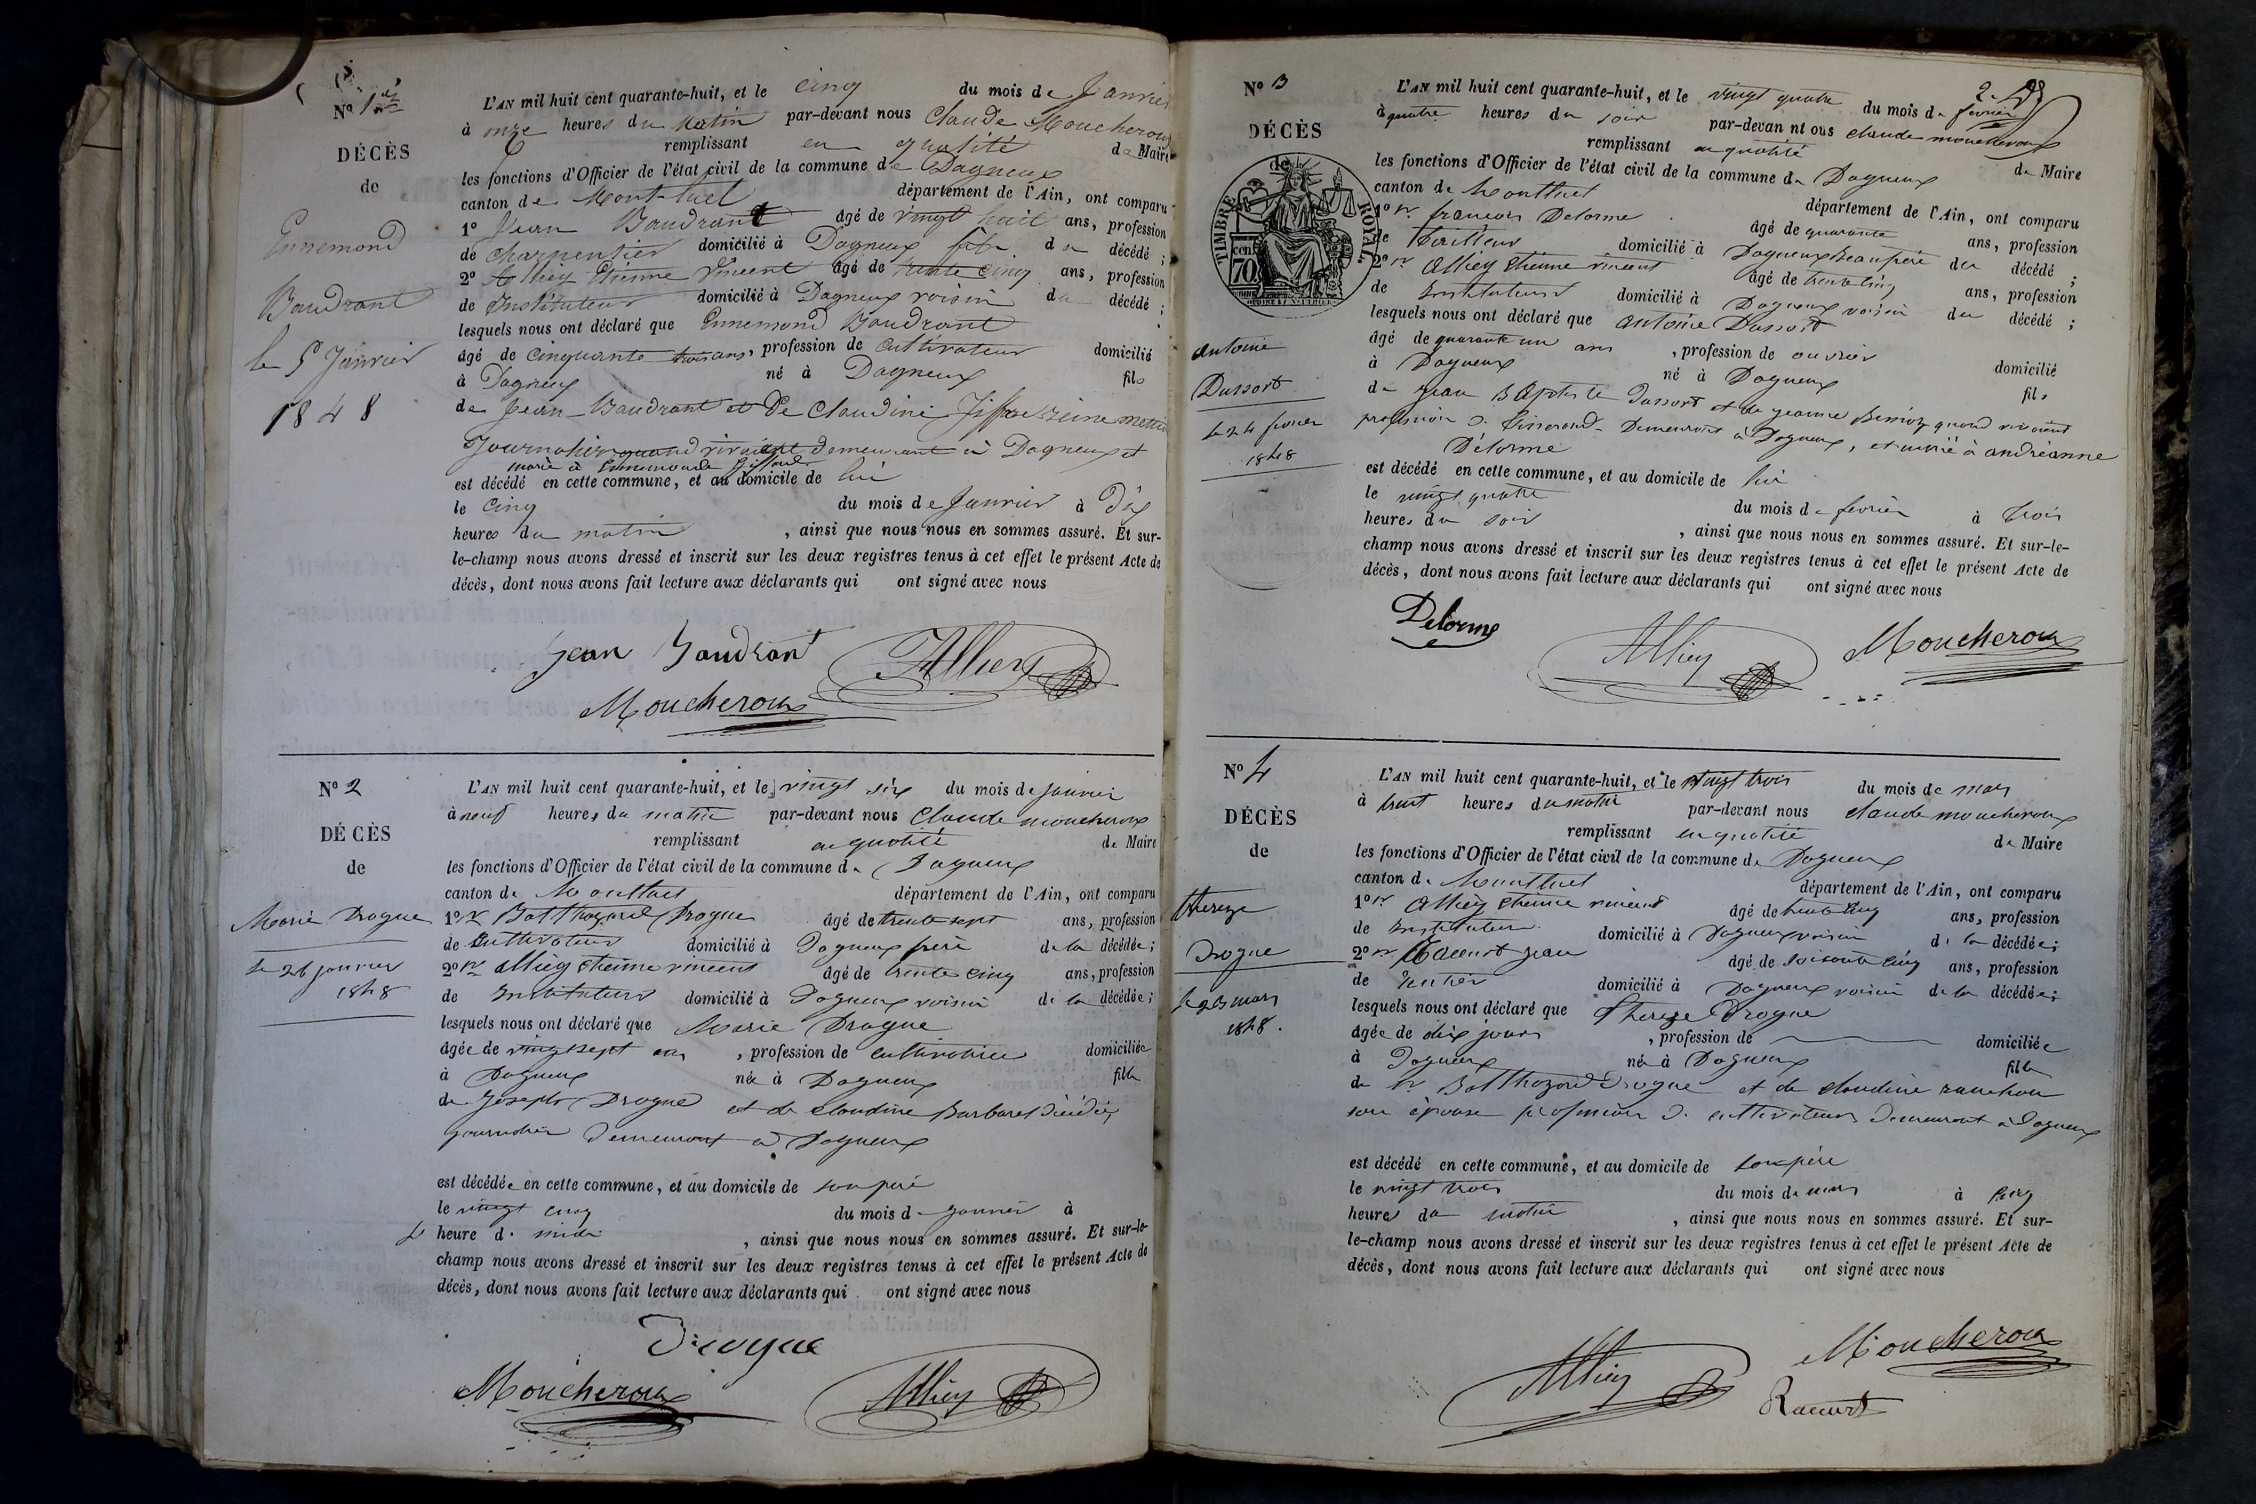 Nº 1er
DÉCÈS
de
Ennemond
Baudrant
le 5 Janvier
1848
L'AN mil huit cent quarante-huit, et le cinq du mois de Janvier
à onze heures du Matin par-devant nous Claude Moucheroux
remplissant en qualité de Maire
les fonctions d'Officier de l'état civil de la commune de Dagneux
canton de Mont-luel département de l'Ain, ont comparu
1º Jean Baudrant âgé de vingt huit ans, profession
de charpentier domicilié à Dagneux fils du décédé ;
2º Alliey Etienne Vincent âgé de trente cinq ans, profession
de Instituteur domicilié à Dagneux voisin du décédé ;
lesquels nous ont déclaré que Ennemond Baudrant
âgé de cinquante trois ans, profession de cultivateur domicilié
à Dagneux né à Dagneux fils
de Jean Baudrant et De Claudine
Journalier quand vivaient demeurant à Dagneux et
marié à Ennemonde
est décédé en cette commune, et au domicile de lui
le cinq du mois de Janvier à Dix
heures du matin , ainsi que nous nous en sommes assuré. Et sur-
le-champ nous avons dressé et inscrit sur les deux registres tenus à cet effet le présent Acte de
décès, dont nous avons fait lecture aux déclarants qui ont signé avec nous
Jean Baudrant Alliey
Moucheroux
Nº 2
DÉCÈS
de
Marie Drogue
le 26 janvier
1848
L'AN mil huit cent quarante-huit, et le vingt six du mois de janvier
à neuf heures du matin par-devant nous Claude moucheroux
remplissant en qualité de Maire
les fonctions d'Officier de l'état civil de la commune de Dagneux
canton de Montluel département de l'Ain, ont comparu
1º sr Balthazard Drogue âgé de trente sept ans, profession
de Cultivateur domicilié à Dagneux frère de la décédée ;
2º sr Alliey etienne vincent âgé de trente cinq ans, profession
de Instituteur domicilié à Dagneux voisin de la décédée ;
lesquels nous ont déclaré que Marie Drogue
âgée de vingt sept ans , profession de cultivatrice domiciliée
à Dagneux née à Dagneux fille
de Joseph Drogue et de claudine Barbaret
journalier demeurant à Dagneux
est décédée en cette commune, et au domicile de son père
le vingt cinq du mois de janvier à
heure de midi , ainsi que nous nous en sommes assuré. Et sur-le-
champ nous avons dressé et inscrit sur les deux registres tenus à cet effet le présent Acte de
décès, dont nous avons fait lecture aux déclarants qui ont signé avec nous
Drogue
Moucheroux Alliey
Nº 3
DÉCÈS
de
TIMBRE ROYAL
70
antoine
Dussort
le 24 fevrier
1848
L'AN mil huit cent quarante-huit, et le vingt quatre du mois de fevrier
à quatre heures du soir par-devan nt ous claude moucheroux
remplissant en qualité de Maire
les fonctions d'Officier de l'état civil de la commune de Dagneux
canton de Montluel département de l'Ain, ont comparu
1º sr françois Delorme âgé de quarante ans, profession
de tailleur domicilié à Dagneux beaupère du décédé ;
2º sr Alliey etienne vincent âgé de trente cinq ans, profession
de Instituteur domicilié à Dagneux voisin du décédé ;
lesquels nous ont déclaré que antoine Dussort
âgé de quarante un ans , profession de ouvrier domicilié
à Dagneux né à Dagneux fils
de jean Baptiste Dussort et de jeanne quand vivaient
profession de Tisserand demeurant à Dagneux, et marié à andréanne
Délorme
est décédé en cette commune, et au domicile de lui
le vingt quatre du mois de fevrier à trois
heures du soir , ainsi que nous nous en sommes assuré. Et sur-le-
champ nous avons dressé et inscrit sur les deux registres tenus à cet effet le présent Acte de
décès, dont nous avons fait lecture aux déclarants qui ont signé avec nous
Delorme
Alliey Moucheroux
Nº 4
DÉCÈS
de
thereze
Drogue
le 23 mars
1848.
L'AN mil huit cent quarante-huit, et le vingt trois du mois de mars
à huit heures du matin par-devant nous claude moucheroux
remplissant en qualité de Maire
les fonctions d'Officier de l'état civil de la commune de Dagneux
canton de Montluel département de l'Ain, ont comparu
1º sr Alliey etienne vincent âgé de trente cinq ans, profession
de Instituteur domicilié à Dagneux voisin de la décédée ;
2º sr Racurt jean âgé de soisante cinq ans, profession
de rentier domicilié à Dagneux voisin de la décédée ;
lesquels nous ont déclaré que thereze Drogue
âgée de dix jours , profession de domiciliée
à Dagneux née à Dagneux fille
de sr Balthazard Drogue et de claudine
son épouse profession de cultivateur demeurant à Dagneux
est décédé en cette commune, et au domicile de son père
le vingt trois du mois de mars à cinq
heures du matin , ainsi que nous nous en sommes assuré. Et sur-
le-champ nous avons dressé et inscrit sur les deux registres tenus à cet effet le présent Acte de
décès, dont nous avons fait lecture aux déclarants qui ont signé avec nous
Alliey Moucheroux
Racurt